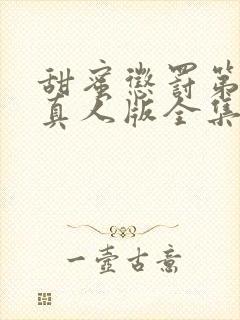 甜蜜懲罰第
真人版全集
一壺古意